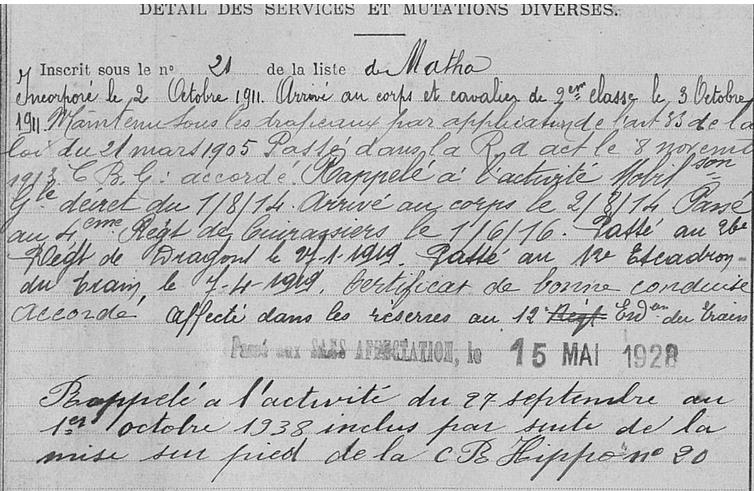 DÉTAIL DES SERVICES ET MUTATIONS DIVERSES.
Inscrit sous le n° 21 de la liste de Matha
Incorporé le 2 Octobre 1911. Arrivé au corps et cavalier de 2eme classe le 3 Octobre
1911. Maintenu sous les drapeaux par application de l'art 33 de la
loi du 21 mars 1905 Passé dans la R d act le 8 novemb
1913. C B C : accordé. Rappelé à l'activité Mobil son
Gle décret du 1/8/14 Arrivé au corps le 2/8/14 Passé
au 4eme Régt de Cuirassiers le 1/6/16. Passé au 26e
Régt de Dragons le 27-1-1919. Passé au 12e Escadron
du train le 7-4-1919. Certificat de bonne conduite
accordé, affecté dans les réserves au 12e Régt Erd en du Train
Passé aux SANS AFFECTATION, le 15 MAI 1928
Rappelé a l'activité du 27 septembre au
1er octobre 1938 inclus par suite de la
mise sur pied de la C R Hippo n° 20